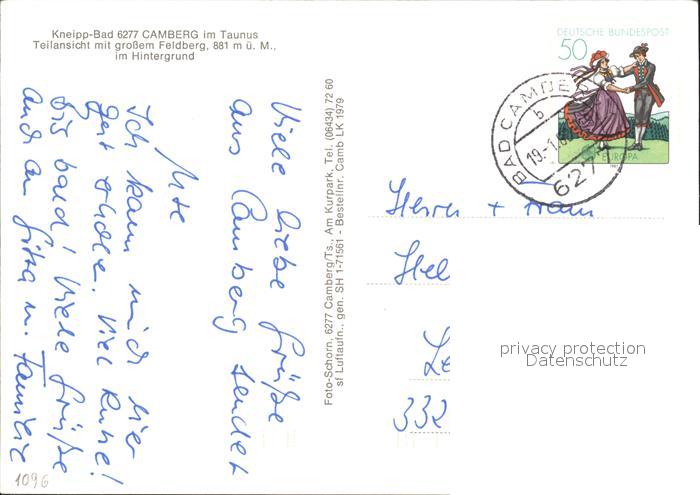 Kneipp-Bad 6277 CAMBERG im Taunus
Teilansicht mit großem Feldberg, 881 m ü. M.,
im Hintergrund
Viele liebe Grüße
aus Camberg sendet
Ute
Ich kann mich hier
gut erholen. Viel Ruhe!
Bis bald! Viele Grüße
auch an Gitta u. Familie
1096
Foto-Schorn, 6277 Camberg/Ts., Am Kurpark, Tel. (06434) 72 60
sf Luftaufn., gen. SH 1-71561 - Bestellnr. Camb LK 1979
DEUTSCHE BUNDESPOST
50
EUROPA
BAD CAMBE
b
19.-1.
6277
Herrn + Frau
Hel
Le
332
privacy protection
Datenschutz